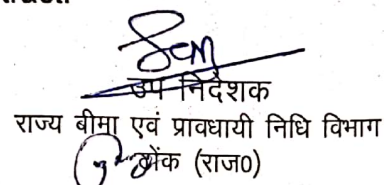 उप निदेशक
राज्य बीमा एवं प्रावधायी निधि विभाग
टोंक (राज0)